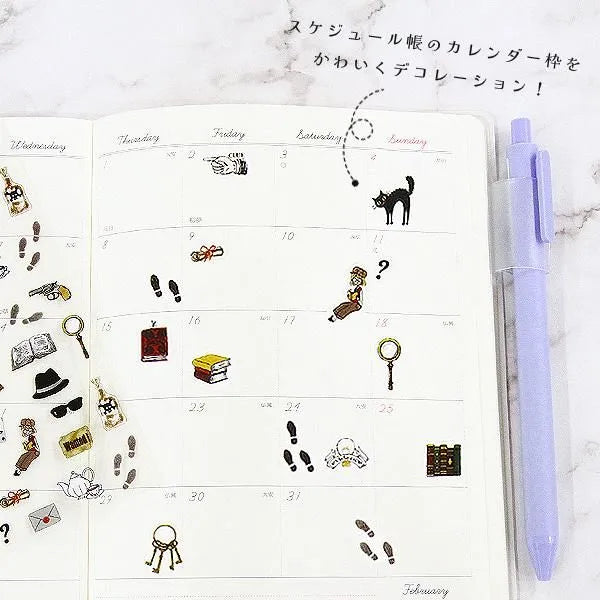 スケジュール帳のカレンダー枠を
かわいくデコレーション!
Wednesday
Thursday
Friday
Saturday
Sunday
1
2
CLUE
3
4
7
8
9
10
11
?
15
16
17
18
23
24
25
Wanted!
29
30
31
?
February